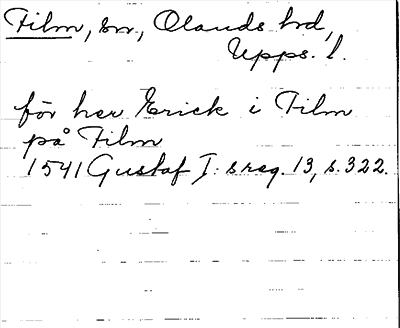 Film, sn, Olands hd,
Upps. l.
för her Erick i Film
på Film
1541 Gustaf I:s reg. 13, s. 322.